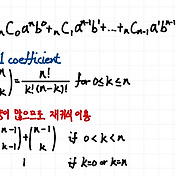 nC₀aⁿb⁰+nC₁aⁿ⁻¹b¹+...+nCn-₁a¹bⁿ⁻¹
coefficient
) = n! / k!(n-k)! for 0≤k≤n
많으므로 재귀식 이용
(n-1 k-1) + (n-1 k) if 0<k<n
1 if k=0 or k=n